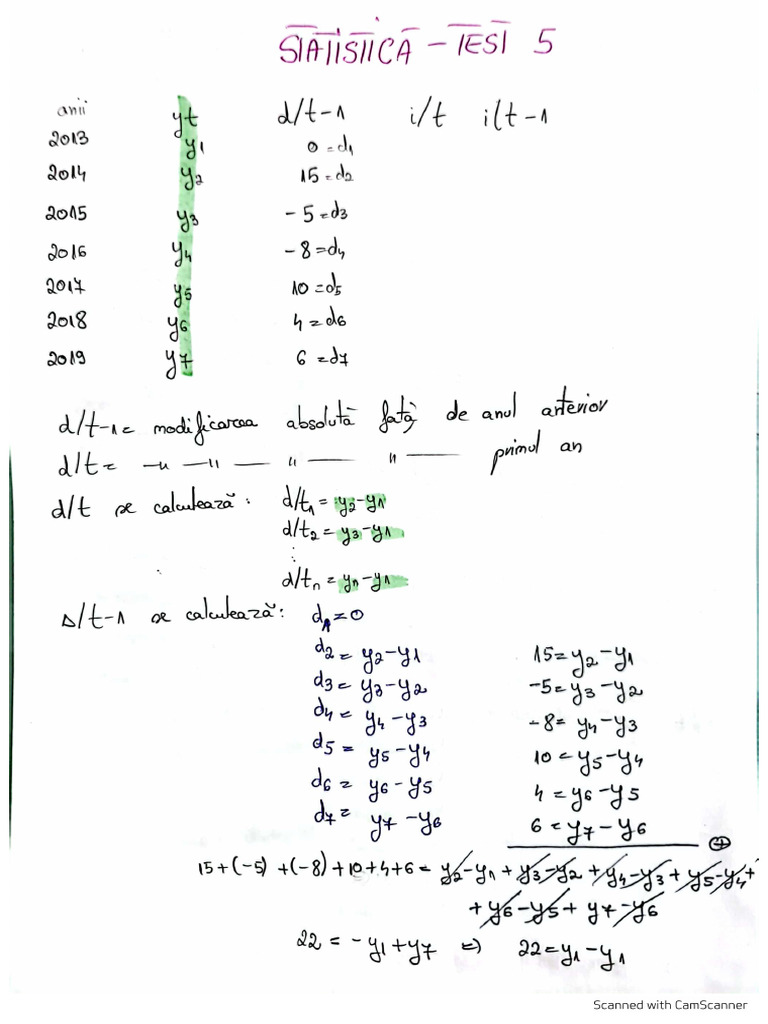 STATISTICĂ - TEST 5
anii yt d/t-1 i/t i/t-1
2013 y1 0=d1
2014 y2 15=d2
2015 y3 -5=d3
2016 y4 -8=d4
2017 y5 10=d5
2018 y6 4=d6
2019 y7 6=d7
d/t-1= modificarea absolută față de anul anterior
d/t= -"- -"- — " — " — primul an
d/t se calculează: d/t1 = y2-y1
d/t2 = y3-y1
⋮
d/tn = yn-y1
Δ/t-1 se calculează: d1=0
d2= y2-y1 15=y2-y1
d3= y3-y2 -5=y3-y2
d4= y4-y3 -8= y4-y3
d5= y5-y4 10=y5-y4
d6= y6-y5 4=y6-y5
d7= y7-y6 6=y7-y6
+
15+(-5)+(-8)+10+4+6= y2-y1+y3-y2+y4-y3+y5-y4+
+y6-y5+y7-y6
22=-y1+y7 => 22=y1-y1
Scanned with CamScanner